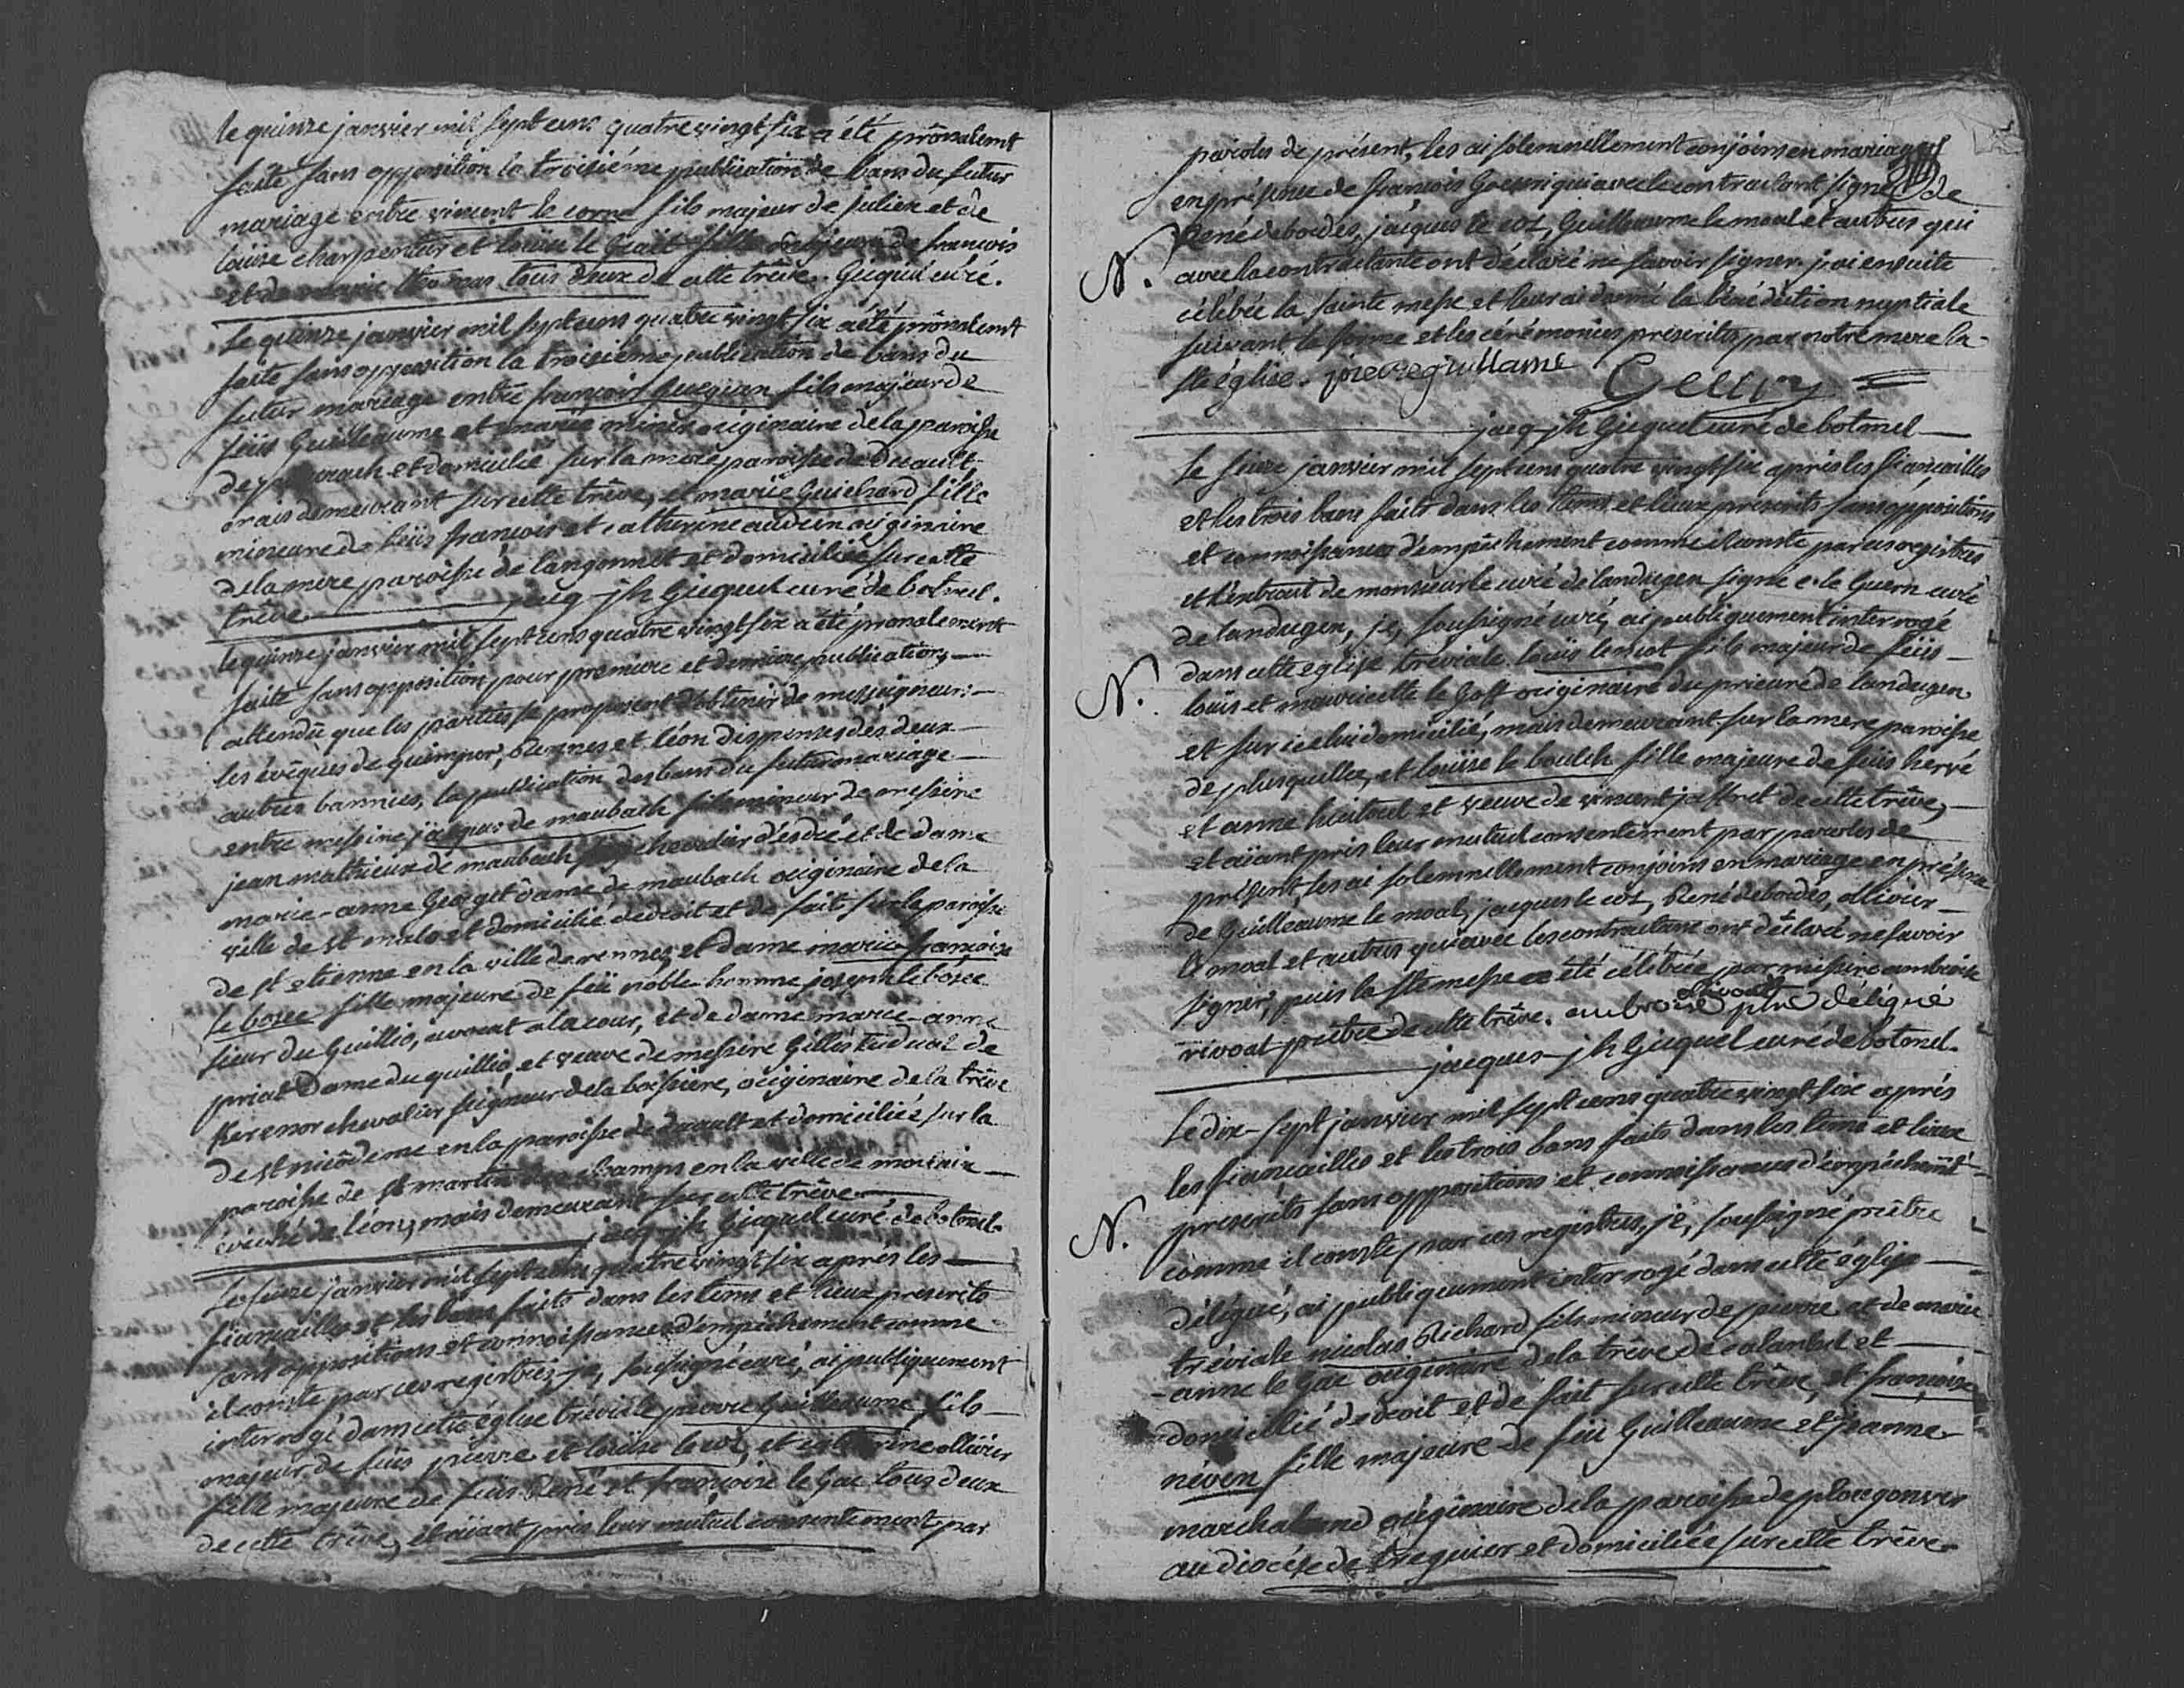 le quinze janvier mil sept cens quatre vingt six a été prônalemt
faite sans opposition la troisiéme publication de bans du futur
mariage entre vincent le corre fils majeur de julien et de
loüise charpentier et loüise le fille majeure de francois
et de marie thomas tous deux de cette trêve. Gicquel curé.
Le quinze janvier mil sept cens quatre vingt six a été prônalemt
faite sans opposition la troisiéme publication de bans du
futur mariage entre francois fils majeur de
feus Guilleaume et marie originaire de la paroisse
de et domicilié sur la mere paroisse de Duault
mais demeurant sur cette trêve, et marie Guichard fille
mineure de feus francois et catherine originaire
de la mere paroisse de langonnet et domiciliée sur cette
trêve jacq-jh Gicquel curé de botmel.
le quinze janvier mil sept cens quatre vingt six a été pronalement
faite sans opposition pour premiere et derniere publication,
attendû que les parties se proposent d'obtenir de messeigneurs
les évêques de quimper, Rennes et léon dispenses des deux
autres bannies, la publication des bans du futur mariage
entre messire jacques de maubach fils mineur de messire
jean mathieu de maubach chevalier et de dame
marie-anne Georget dame de maubach originaire de la
ville de st malo et domicilié de droit et de fait sur la paroisse
de st etienne en la ville de rennes, et dame marie-francoise
le bozec fille majeure de feu noble-homme joseph le bozec
sieur du Guillio, avocat a la cour, et de dame marie-anne
priat dame du quillio, et veuve de messire Gilles tudual de
Kerenor chevalier seigneur de la boissiere, originaire de la trêve
de st nicôdeme en la paroisse de duault et domiciliée sur la
paroisse de st martin des champs en la ville de morlaix
évêché de léon, mais demeurant sur cette trêve
jacq-jh Gicquel curé de botmel.
Le seize janvier mil sept cens quatre vingt six aprés les
fiancailles et les bans faits dans les tems et lieux prescrits
sans oppositions et connoissances d'empêchement comme
il conste par ces registres, je, soussigné curé, ai publiquement
interrogé dans cette église tréviale pierre Guilleaume fils
majeur de feus pierre et loüise le coz, et catherine ollivier
fille majeure de feus René et francoise le Gac tous deux
de cette trêve, et aïant pris leur mutuel consentement par
paroles de présent, les ai solemnellement conjoins en mariage
en présence de francois qui avec le contractant signe de
René debordes, jacques le coz, Guilleaume le moal et autres qui
N. avec la contractante ont déclaré ne savoir signer. j'ai ensuite
célébré la sainte messe et leur ai donné la bénédiction nuptiale
suivant la forme et les cérémonies prescrites par notre mere la
ste église. pierre guillame
jacq-jh Gicquel curé de botmel
Le seize janvier mil sept cens quatre vingt six aprés les fiancailles
et les trois bans faits dans les tems et lieux prescrits sans oppositions
et connoissances d'empêchement comme il conste par ces registres
et l'extrait de monsieur le curé de landugen signé e. le Guern curé
de landugen, je, soussigné curé, ai publiquement interrogé
dans cette eglise tréviale loüis fils majeur de feüs
N. loüis et mauricette le Goff originaire du prieuré de landugen
et sur icelui domicilié, mais demeurant sur la mere paroisse
de plusquellec, et loüise le boulch fille majeure de feüs hervé
et anne et veuve de vincent de cette trêve,
et aïant pris leur mutuel consentement par paroles de
présent, les ai solemnellement conjoins en mariage en présence
de Guilleaume le moal, jacques le coz, René debordes, ollivier
le moal et autres qui avec les contractans ont déclaré ne savoir
signer, puis la ste messe a été célébrée par missire ambroise
rivoal prêtre de cette trêve. ambroise rivoal ptre délégué
jacques-jh Gicquel curé de botmel.
Le dix-sept janvier mil sept cens quatre vingt six aprés
les fiancailles et les trois bans faits dans les tems et lieux
prescrits sans oppositions et connoissances d'empêchemt
N. comme il conste par ces registres, je, soussigné prêtre
délégué, ai publiquement interrogé dans cette église
tréviale nicolas Richard fils mineur de pierre et de marie
-anne le Gac originaire de la trêve de calanhel et
domicilié de droit et de fait sur cette trêve, et francoise
néven fille majeure de feu Guilleaume et jeanne
marchaland originaire de la paroisse de plougonver
au diocése de treguier et domiciliée sur cette trêve